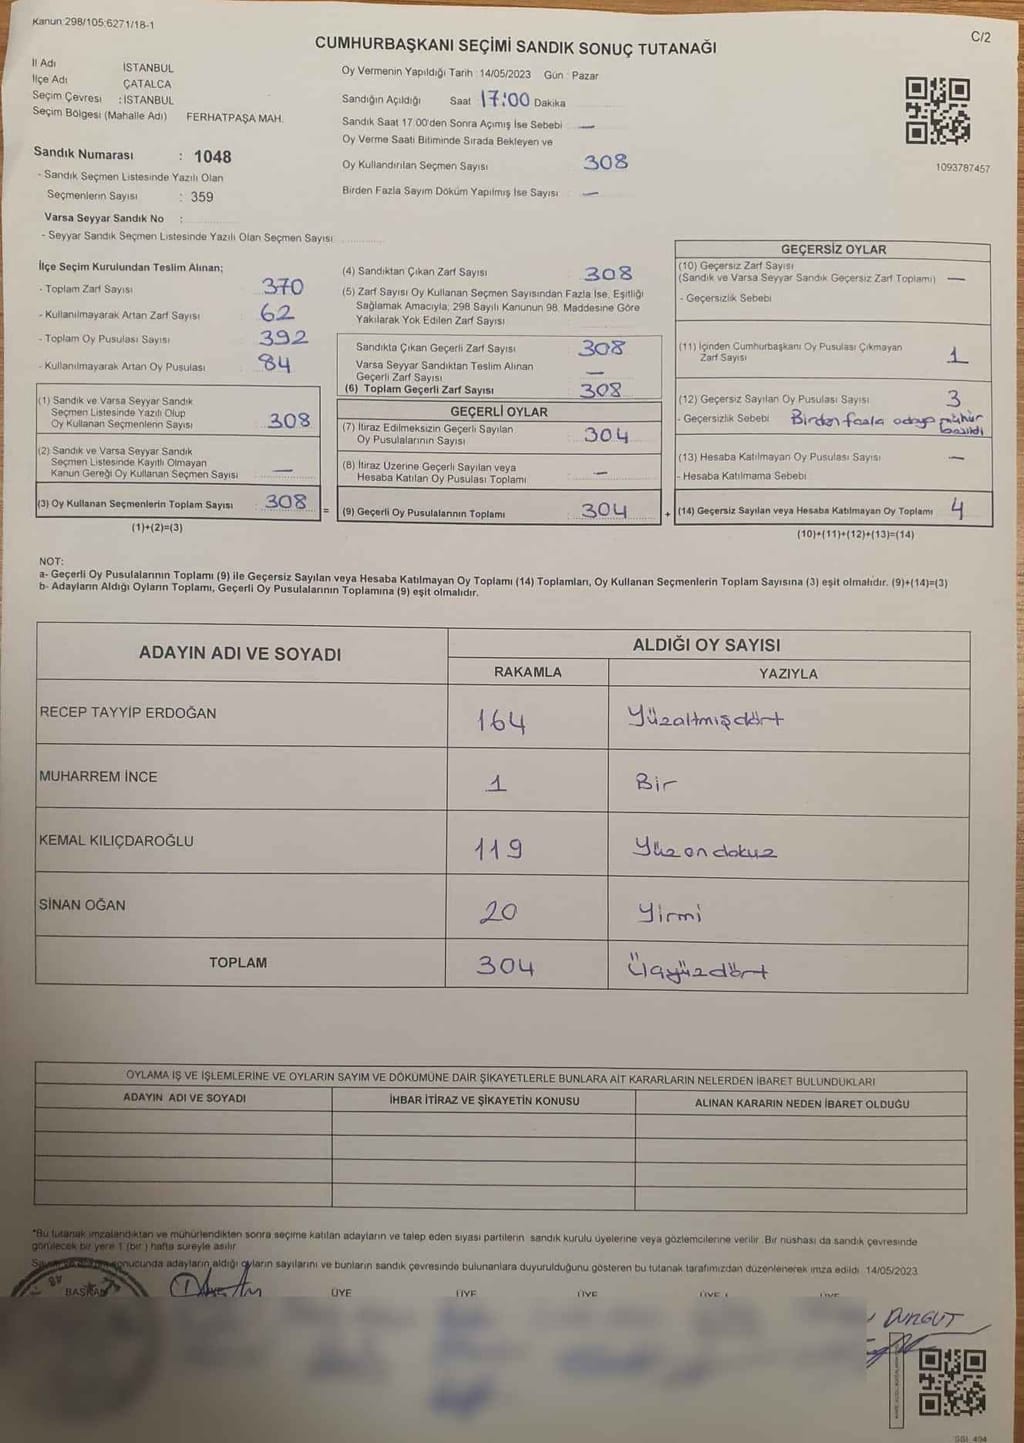 Kanun 298/105:6271/18-1
C/2
CUMHURBAŞKANI SEÇİMİ SANDIK SONUÇ TUTANAĞI
İl Adı İSTANBUL
İlçe Adı ÇATALCA
Seçim Çevresi : İSTANBUL
Seçim Bölgesi (Mahalle Adı) FERHATPAŞA MAH.
Sandık Numarası : 1048
- Sandık Seçmen Listesinde Yazılı Olan
Seçmenlerin Sayısı : 359
Varsa Seyyar Sandık No :
- Seyyar Sandık Seçmen Listesinde Yazılı Olan Seçmen Sayısı
Oy Vermenin Yapıldığı Tarih : 14/05/2023 Gün : Pazar
Sandığın Açıldığı Saat 17:00 Dakika
Sandık Saat 17.00'den Sonra Açımış İse Sebebi —
Oy Verme Saati Bitiminde Sırada Bekleyen ve
Oy Kullandırılan Seçmen Sayısı 308
Birden Fazla Sayım Döküm Yapılmış İse Sayısı —
1093787457
İlçe Seçim Kurulundan Teslim Alınan;
- Toplam Zarf Sayısı 370
- Kullanılmayarak Artan Zarf Sayısı 62
- Toplam Oy Pusulası Sayısı 392
- Kullanılmayarak Artan Oy Pusulası 84
(1) Sandık ve Varsa Seyyar Sandık
Seçmen Listesinde Yazılı Olup
Oy Kullanan Seçmenlerin Sayısı 308
(2) Sandık ve Varsa Seyyar Sandık
Seçmen Listesinde Kayıtlı Olmayan
Kanun Gereği Oy Kullanan Seçmen Sayısı —
(3) Oy Kullanan Seçmenlerin Toplam Sayısı 308 =
(1)+(2)=(3)
(4) Sandıktan Çıkan Zarf Sayısı 308
(5) Zarf Sayısı Oy Kullanan Seçmen Sayısından Fazla İse, Eşitliği
Sağlamak Amacıyla, 298 Sayılı Kanunun 98. Maddesine Göre
Yakılarak Yok Edilen Zarf Sayısı
Sandıkta Çıkan Geçerli Zarf Sayısı 308
Varsa Seyyar Sandıktan Teslim Alınan
Geçerli Zarf Sayısı —
(6) Toplam Geçerli Zarf Sayısı 308
GEÇERLİ OYLAR
(7) İtiraz Edilmeksizin Geçerli Sayılan
Oy Pusulalarının Sayısı 304
(8) İtiraz Üzerine Geçerli Sayılan veya
Hesaba Katılan Oy Pusulası Toplamı —
(9) Geçerli Oy Pusulalarının Toplamı 304 +
GEÇERSİZ OYLAR
(10) Geçersiz Zarf Sayısı
(Sandık ve Varsa Seyyar Sandık Geçersiz Zarf Toplamı) —
- Geçersizlik Sebebi
(11) İçinden Cumhurbaşkanı Oy Pusulası Çıkmayan
Zarf Sayısı 1
(12) Geçersiz Sayılan Oy Pusulası Sayısı 3
- Geçersizlik Sebebi Birden fazla adaya mühür
basıldı
(13) Hesaba Katılmayan Oy Pusulası Sayısı —
- Hesaba Katılmama Sebebi
(14) Geçersiz Sayılan veya Hesaba Katılmayan Oy Toplamı 4
(10)+(11)+(12)+(13)=(14)
NOT:
a- Geçerli Oy Pusulalarının Toplamı (9) ile Geçersiz Sayılan veya Hesaba Katılmayan Oy Toplamı (14) Toplamları, Oy Kullanan Seçmenlerin Toplam Sayısına (3) eşit olmalıdır. (9)+(14)=(3)
b- Adayların Aldığı Oyların Toplamı, Geçerli Oy Pusulalarının Toplamına (9) eşit olmalıdır.
ADAYIN ADI VE SOYADI
ALDIĞI OY SAYISI
RAKAMLA YAZIYLA
RECEP TAYYİP ERDOĞAN 164 Yüzaltmışdört
MUHARREM İNCE 1 Bir
KEMAL KILIÇDAROĞLU 119 Yüzondokuz
SİNAN OĞAN 20 Yirmi
TOPLAM 304 Üçyüzdört
OYLAMA İŞ VE İŞLEMLERİNE VE OYLARIN SAYIM VE DÖKÜMÜNE DAİR ŞİKAYETLERLE BUNLARA AİT KARARLARIN NELERDEN İBARET BULUNDUKLARI
ADAYIN ADI VE SOYADI İHBAR İTİRAZ VE ŞİKAYETİN KONUSU ALINAN KARARIN NEDEN İBARET OLDUĞU
"Bu tutanak imzalandıktan ve mühürlendikten sonra seçime katılan adayların ve talep eden siyasi partilerin sandık kurulu üyelerine veya gözlemcilerine verilir. Bir nüshası da sandık çevresinde
görülecek bir yere 1 (bir ) hafta süreyle asılır.
sonucunda adayların aldığı oyların sayılarını ve bunların sandık çevresinde bulunanlara duyurulduğunu gösteren bu tutanak tarafımızdan düzenlenerek imza edildi. 14/05/2023
BAŞKAN ÜYE ÜYE ÜYE ÜYE ÜYE